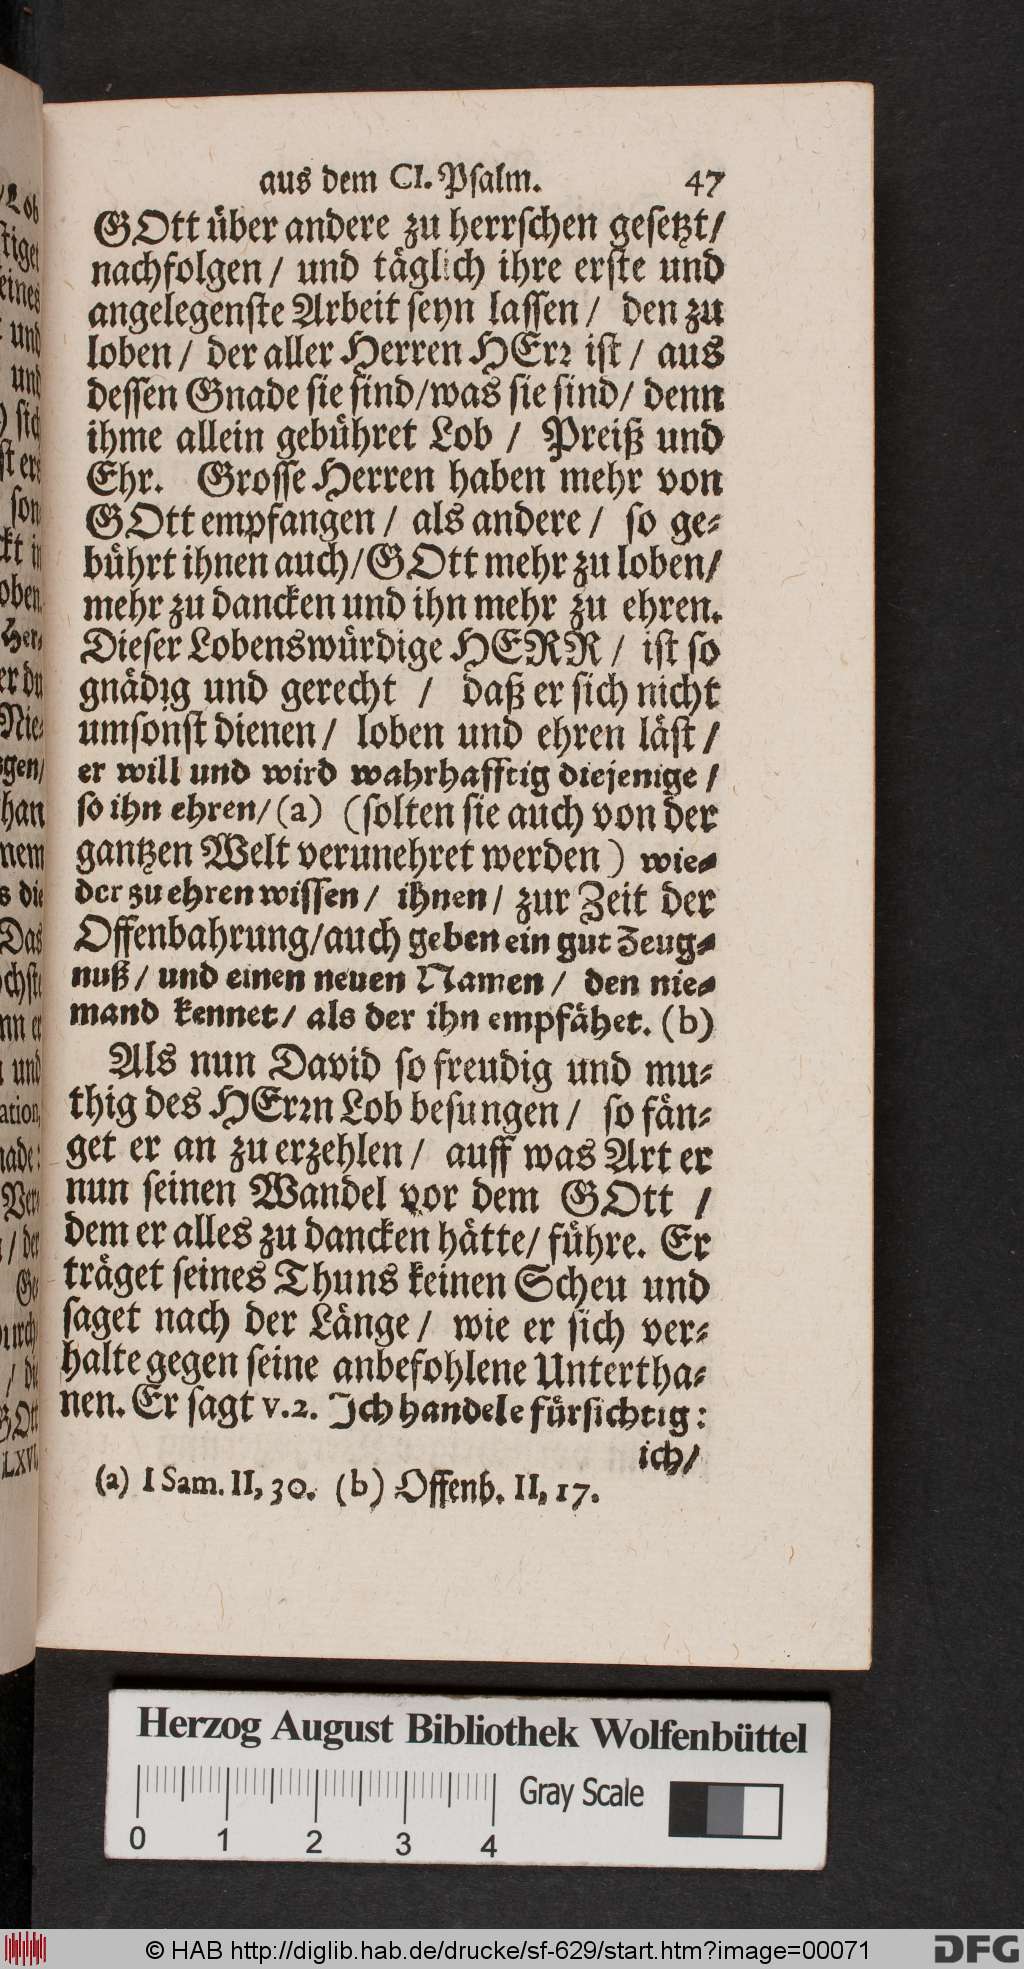 aus dem CI. Psalm. 47
GOtt über andere zu herrschen gesetzt/
nachfolgen / und täglich ihre erste und
angelegenste Arbeit seyn lassen / den zu
loben / der aller Herren HErr ist / aus
dessen Gnade sie sind/was sie sind/ denn
ihme allein gebühret Lob / Preiß und
Ehr. Grosse Herren haben mehr von
GOtt empfangen / als andere / so ge-
bührt ihnen auch/GOtt mehr zu loben/
mehr zu dancken und ihn mehr zu ehren.
Dieser Lobenswürdige HERR / ist so
gnädig und gerecht / daß er sich nicht
umsonst dienen / loben und ehren läst /
er will und wird wahrhafftig diejenige /
so ihn ehren/ (a) (solten sie auch von der
gantzen Welt verunehret werden) wie-
der zu ehren wissen / ihnen / zur Zeit der
Offenbahrung/auch geben ein gut Zeug-
nuß / und einen neuen Namen / den nie-
mand kennet/ als der ihn empfähet. (b)
Als nun David so freudig und mu-
thig des HErrn Lob besungen / so fän-
get er an zu erzehlen / auff was Art er
nun seinen Wandel vor dem GOtt /
dem er alles zu dancken hätte/ führe. Er
träget seines Thuns keinen Scheu und
saget nach der Länge / wie er sich ver-
halte gegen seine anbefohlene Untertha-
nen. Er sagt v.2. Ich handele fürsichtig:
ich/
(a) I Sam. II, 30. (b) Offenb. II, 17.
Herzog August Bibliothek Wolfenbüttel
Gray Scale
0 1 2 3 4
© HAB http://diglib.hab.de/drucke/sf-629/start.htm?image=00071
DFG